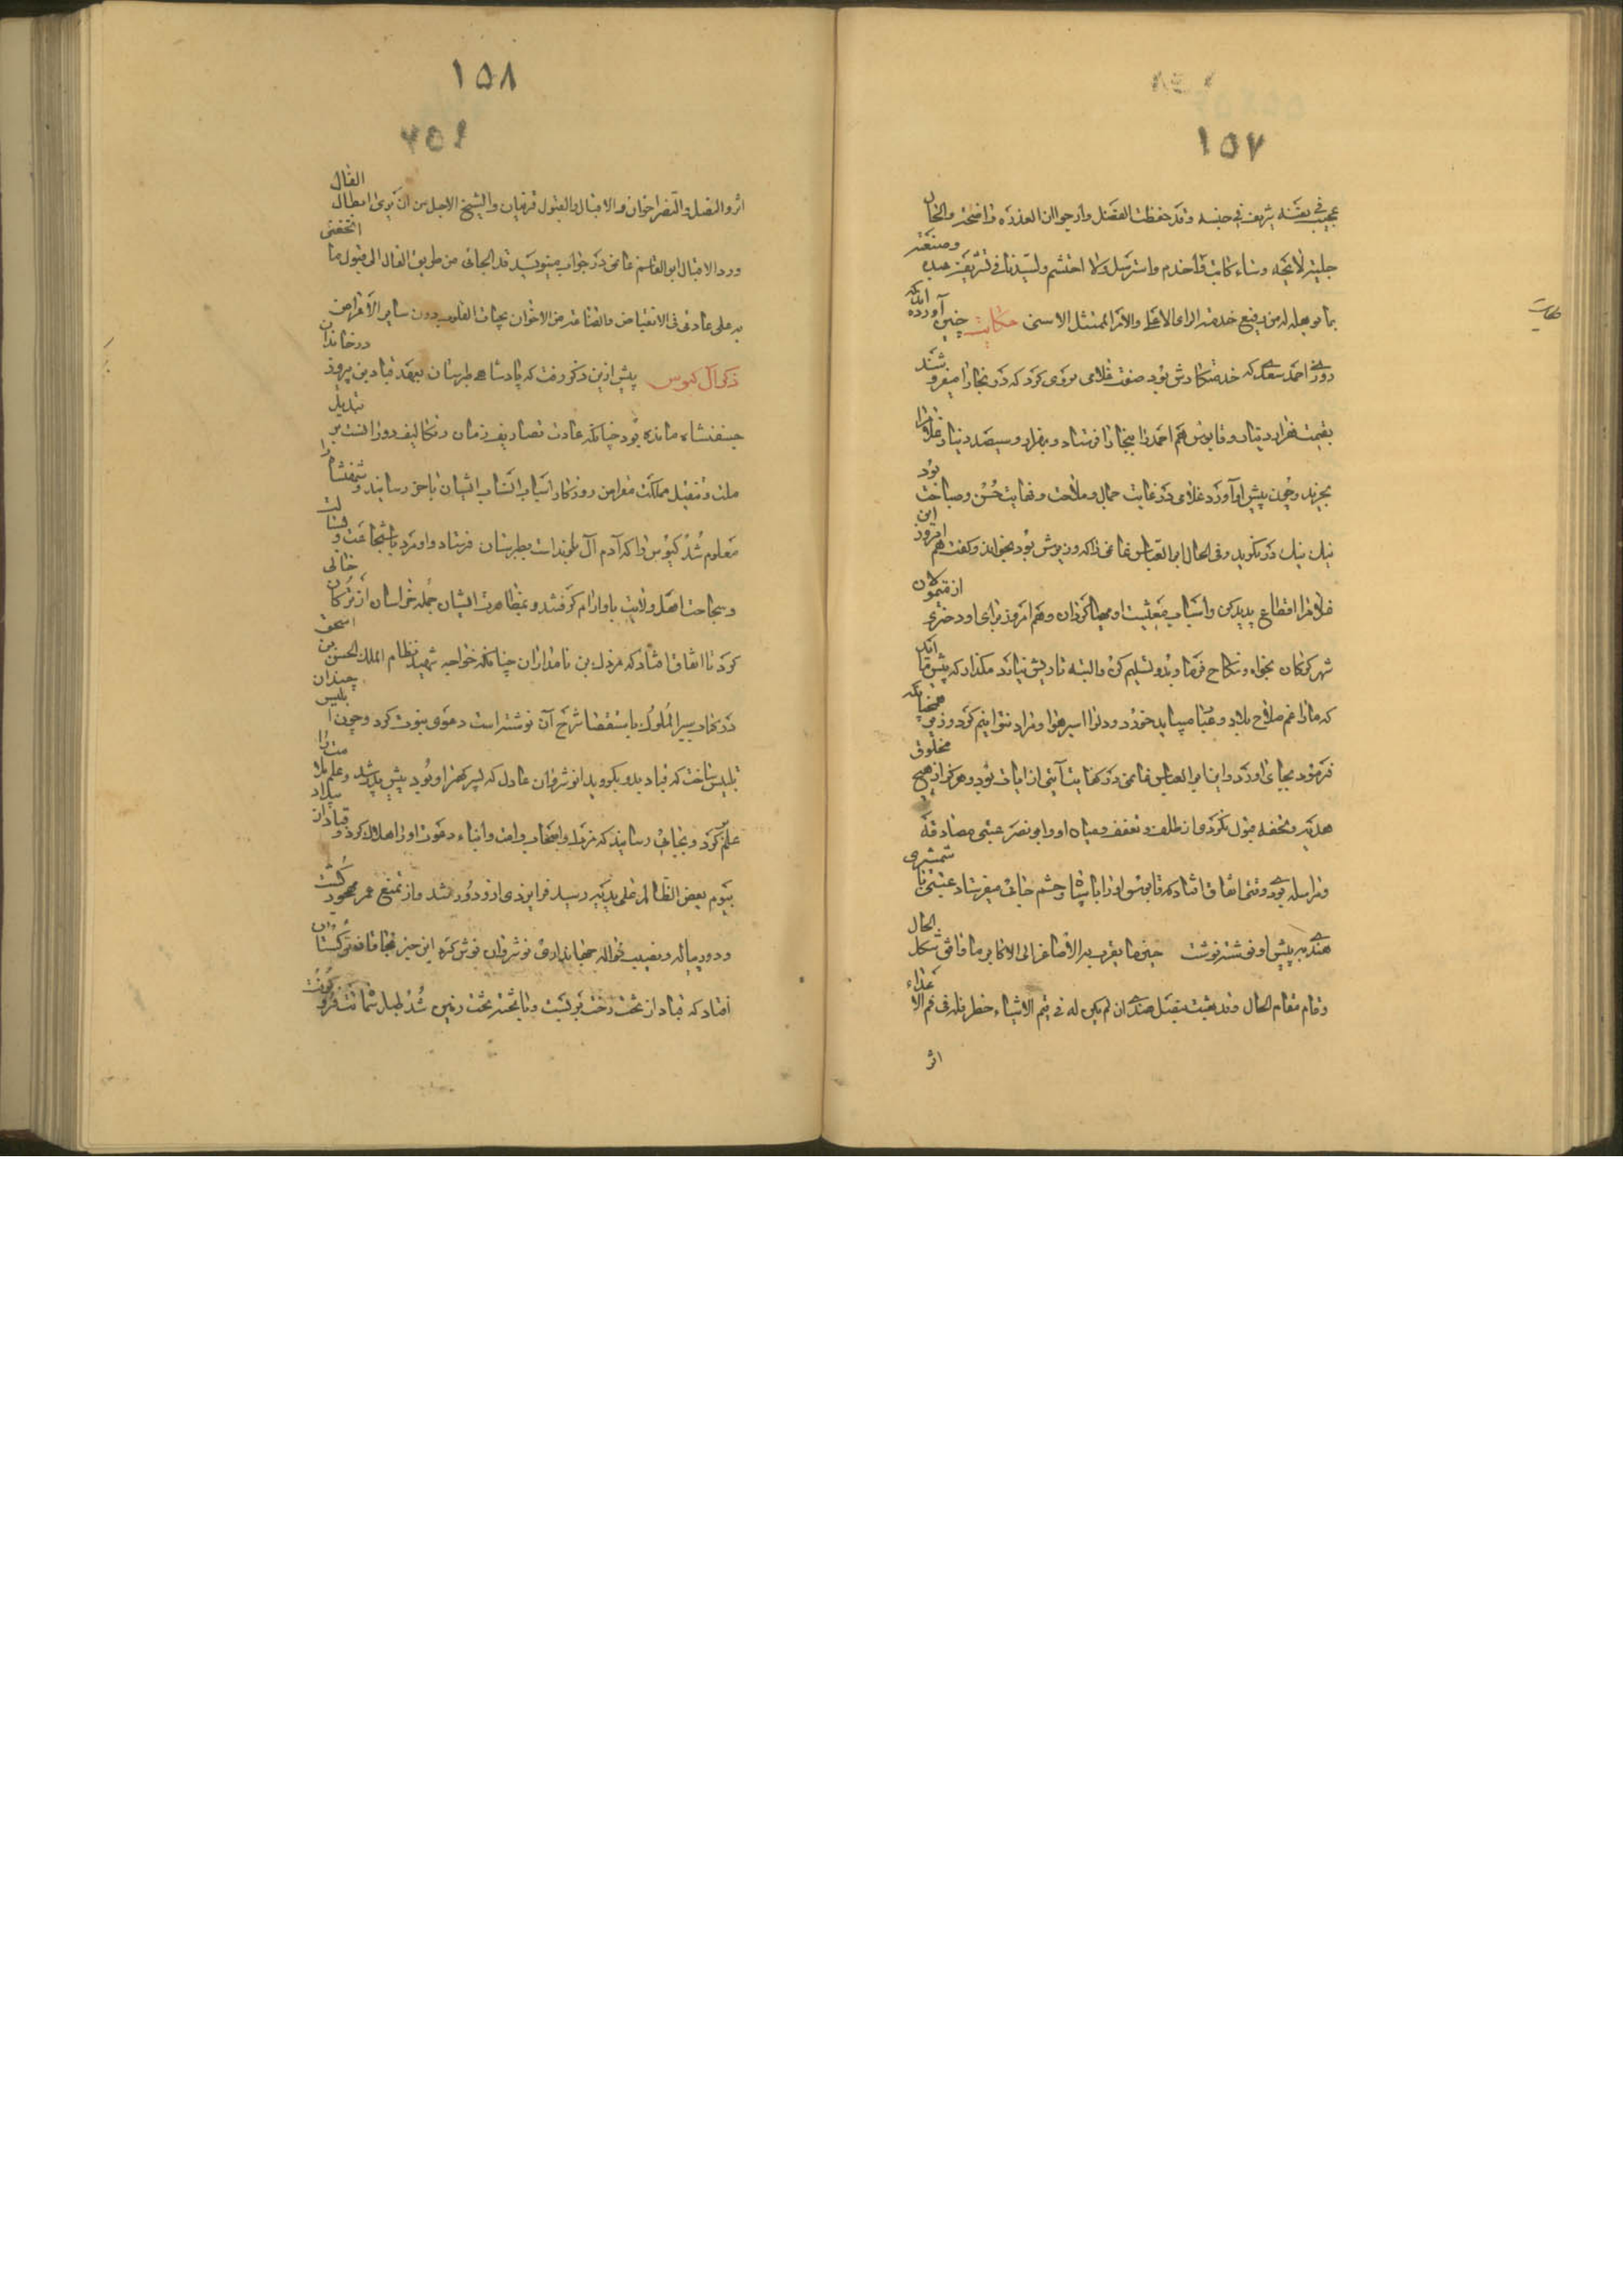 ١٥٧
عجیب فی نفسه شریف فی جنسه وقد حفظت الفضل وارجو ان العذر واضحة والحال
جلیته لایحه وشاء کاتب قد خدم واسترسل ولا احتشم ولسیدنا فی تشریف عبده وصنیعته
بما یوهله له من رفیع خدمته الرای الاعلی والامر الممتثل الاسنی حکایت چنین آورده اند که
روزی احمد سعدی که خدمتکارش بود صفت غلامی می کرد که در بخارا میفروشند
بقیمت هزار دینار وقابوس هم احمد را ببخارا فرستاد و بهزار و سیصد دینار غلام را
بخرید وچون پیش او آورد غلامی در غایت جمال وملاحت ونهایت حسن وصباحت بود
نیک نیک در نگرید وفی الحال ابو العباس غانمی را که وزیرش بود بخواند وگفت هم امروز این
غلام را اقطاع پدید کن واسباب معیشت او مهیا گردان وهم امروز برای او دختری از متمولان
شهر گرگان بخواه ونکاح فرما و بدو تسلیم کن والبته تا ریش نیارد مگذار که پیش ما آید
که ما را غم صلاح بلاد وعباد میباید خورد و دل را اسیر هوا ومراد نتوانیم کرد وزیر همچنانکه
فرموده بجای آورد و این ابو العباس غانمی در کفایت آیتی از آیات بود و هرگز از هیچ مخلوق
هدیه وتحفه قبول نکردی از ظلف وتعفف وصیانت او وابو نصر عتبی مصادقه
ومراسله بودی وقتی اتفاق افتاد که قابوس او را با سپاه وحشم جائی میفرستاد عتبی تا شمشیری
هندی به پیش او نوشته نوشت خیر ما یقرب به الاصاغر الی الاکابر ما وافق شکل الحال
وقام مقام الفال وقد بعثت بنصل هندی ان لم یکن له فی قیم الاشیاء خطر فله فی قمم الاعداء
اثر
حکایت
١٥٨
اثر والنصل والنصر اخوان والاقبال والقبول قرینان والشیخ الاجل من ان یری ابطال الفال
ورد الاقبال ابو القاسم غانمی در جواب مینویسد قد الجانی من طریق الفال الی قبول ما اتحفنی
به علی عادتی فی الانقباض والقناعة من الاخوان بحیات القلوب دون سایر الاغراض
ذکر آل کیوس پیش ازین ذکر رفت که پادشاهی طبرستان بعهد قباد بن پیروز در خاندان
جسنفشاه مانده بود چنانکه عادت تصاریف زمان وتکالیف دوران است بر تبدیل
ملت وتنقیل مملکت مقراض روزگار اسباب انساب ایشان باخر رسانید و شهنشاه را
معلوم شد کیوس را که آدم آل باوند است بطبرستان فرستاد و او مرد باشجاعت و بسالت
وسماحت اهل ولایت با او آرام گرفتند وبمظاهرت ایشان جمله خراسان از ترکان خالی
کرد تا اتفاق افتاد که مزدک بن نامداران چنانکه خواجه شهید نظام الملک الحسن بن اسحق
در کتاب سیر الملوک باستقضا شرح آن نوشته است دعوی نبوت کرد وچون ابلیس چندان
تلبیس ساخت که قباد بدو بگروید انوشروان عادل که پسر کهتر او بود پیش پدر شد وعلم بلاغت را
علم کرد وبجایی رسانید که مزدک واصحاب واعت وانباء دعوت او را هلاک کرد و قباد از بیداد
بیوم یعض الظالم علی یدیه رسید فر ایزدی ازو دور شد واز تمتع عمر محروم گشت
ودور بپایان ونصیب نواله جهانداری نوشروان نوش کرد این خبر بخاقان ترکستان
افتاد که قباد از تخت رخت بربست وبا تخته تخت زمین شد طبل شماتت فرو کوفت